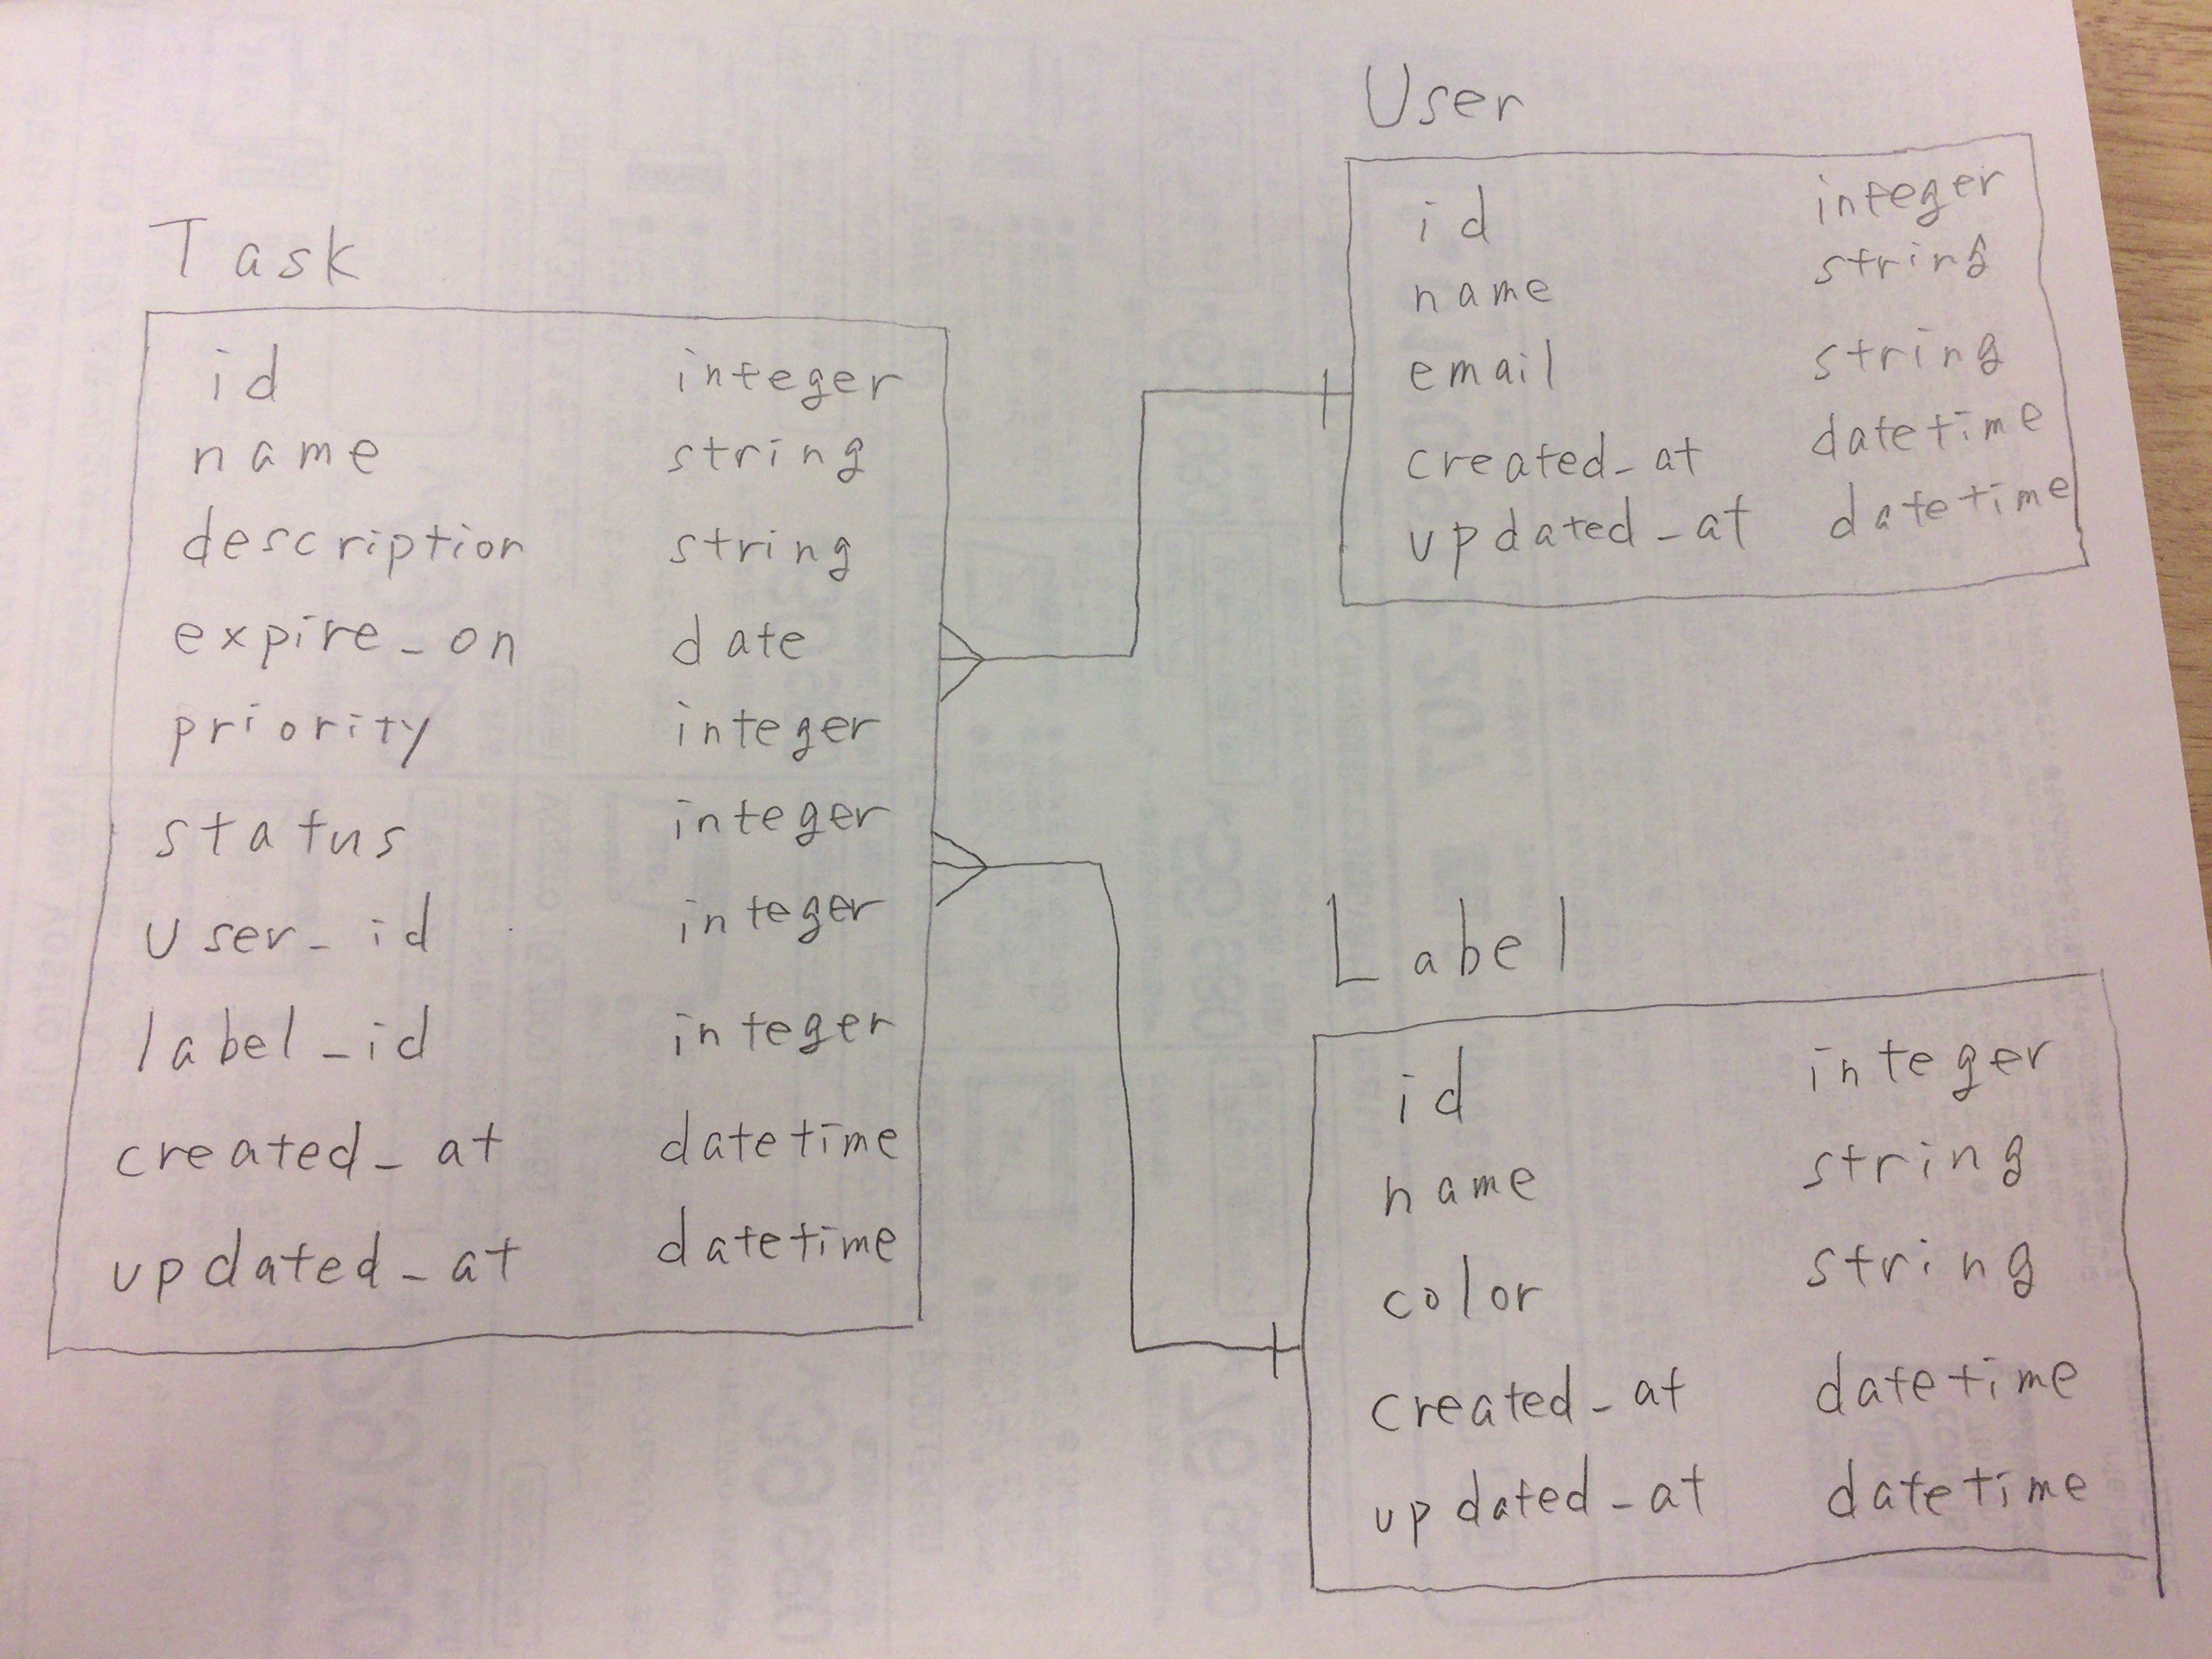 Task
id integer
name string
description string
expire_on date
priority integer
status integer
user_id integer
label_id integer
created_at datetime
updated_at datetime
User
id integer
name string
email string
created_at datetime
updated_at datetime
Label
id integer
name string
color string
created_at datetime
updated_at datetime